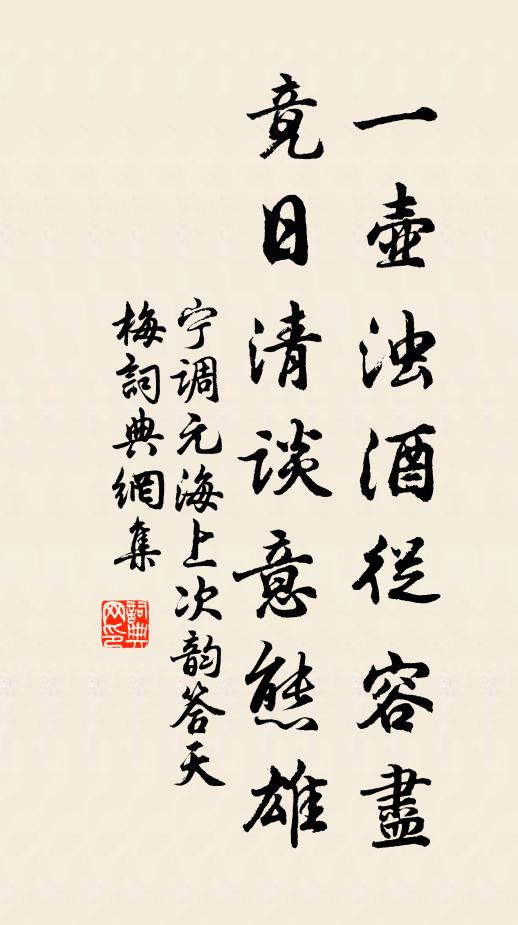 一壺浊酒從容盡
竟日清談意態雄
宁調元海上次韵答天
梅詞典網集
詞典
网印